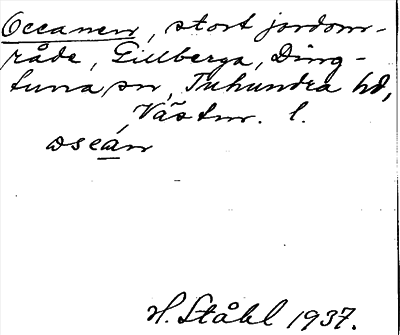 Occanen, stort jordom-
råde, Gillberga, Ding-
tuna sn, Tuhundra hd,
Västm. l.
oseán
H. Ståhl 1937.